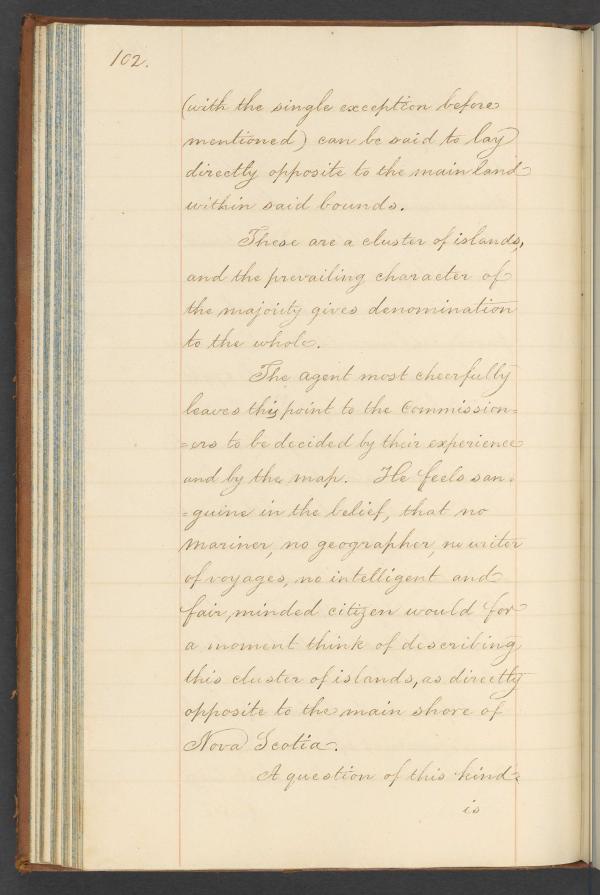 102.
(with the single exception before
mentioned) can be said to lay
directly opposite to the main land
within said bounds.
These are a cluster of islands,
and the prevailing character of
the majority gives denomination
to the whole.
The agent most cheerfully
leaves this point to the Commission=
=ers to be decided by their experience
and by the map. He feels san=
=guine in the belief, that no
mariner, no geographer, no writer
of voyages, no intelligent and
fair, minded citizen would for
a moment think of describing
this cluster of islands, as directly
opposite to the main shore of
Nova Scotia.
A question of this kind
is